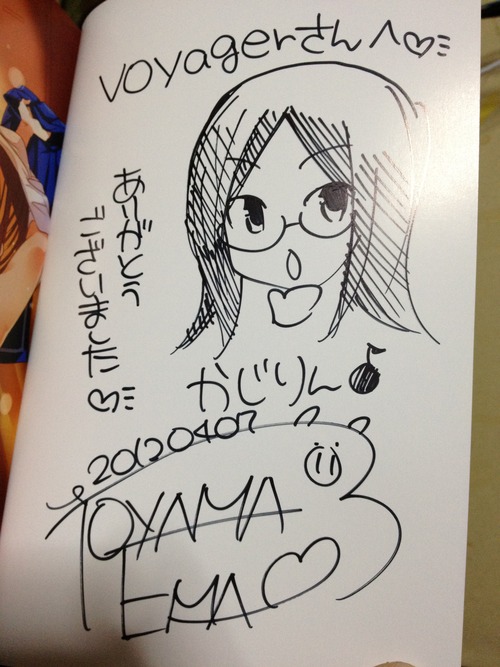 voyagerさんへ♡
ありがとう
ございました♡
かじりん♪
20120407
TOYAMA
EMA♡